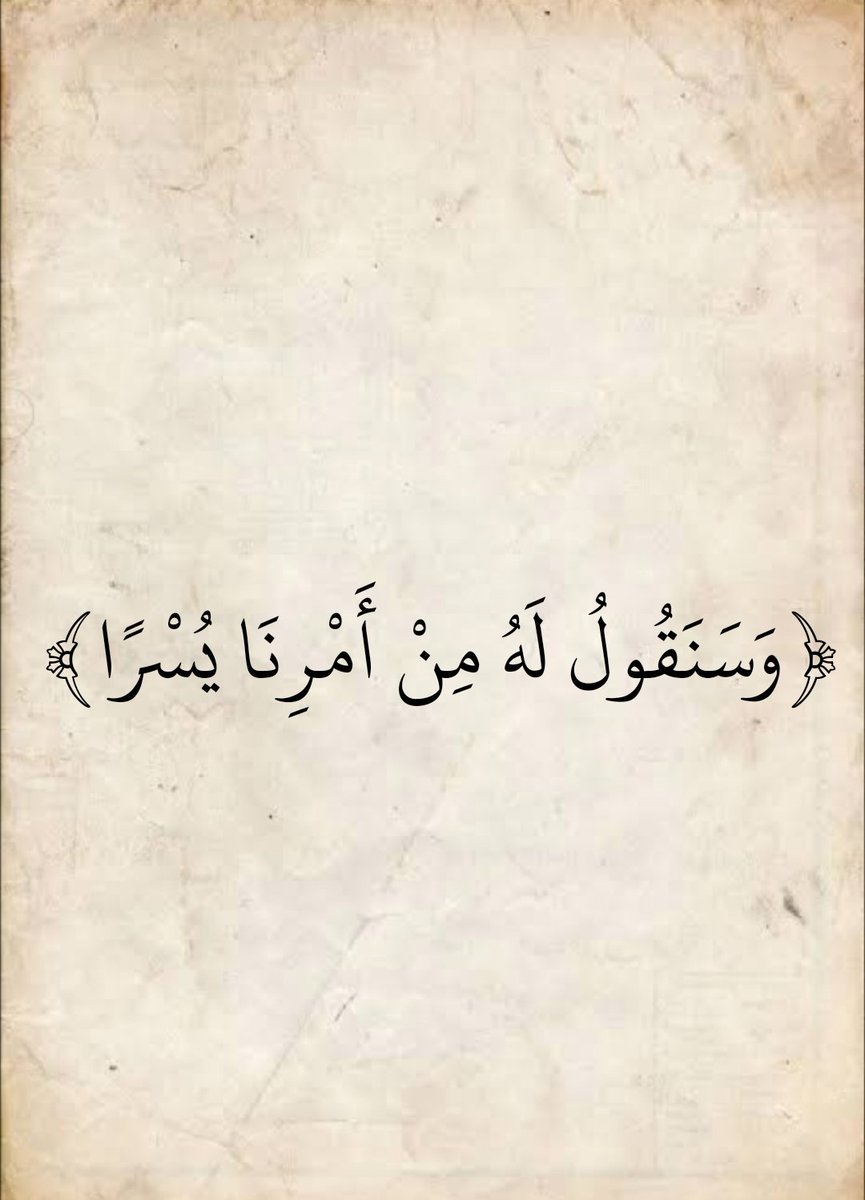 ﴿وَسَنَقُولُ لَهُ مِنْ أَمْرِنَا يُسْرًا﴾